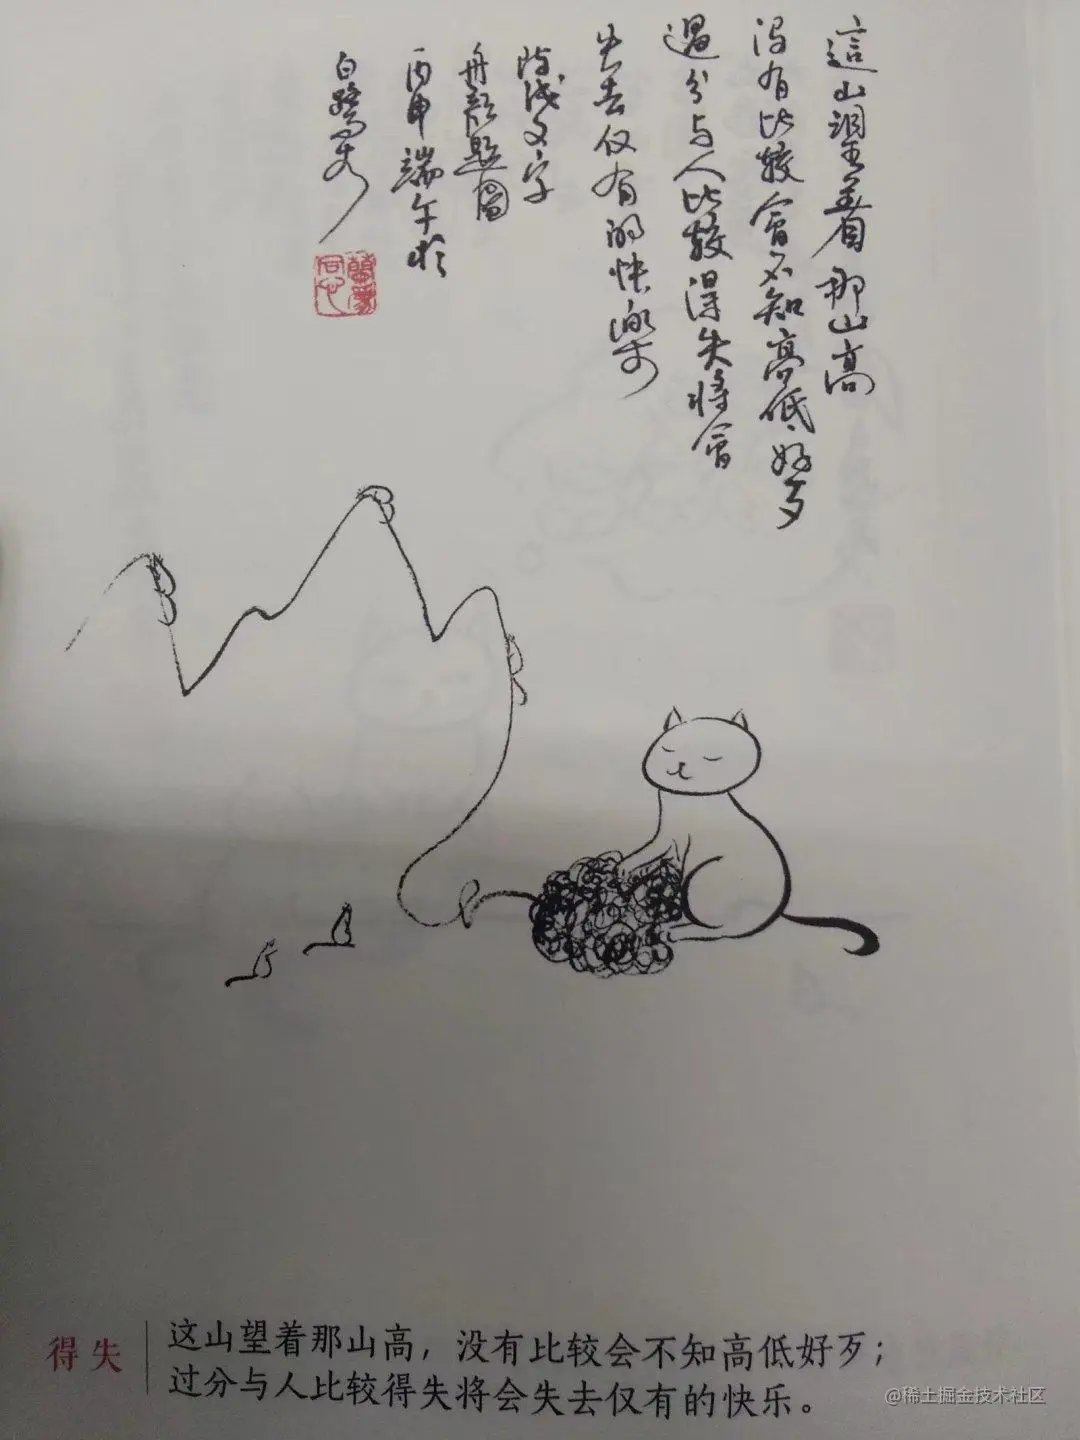 這山望着那山高
没有比較會不知高低好歹
過分与人比較得失將會
失去仅有的快樂
文字
題圖
丙申端午於
白鷺
得失
这山望着那山高，没有比较会不知高低好歹；
过分与人比较得失将会失去仅有的快乐。
@稀土掘金技术社区